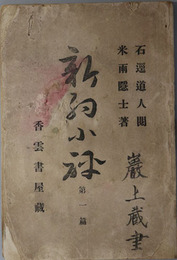 石遥道人閲
米雨隱士著
新約小評
第一篇
香雲書屋藏
巖上藏書